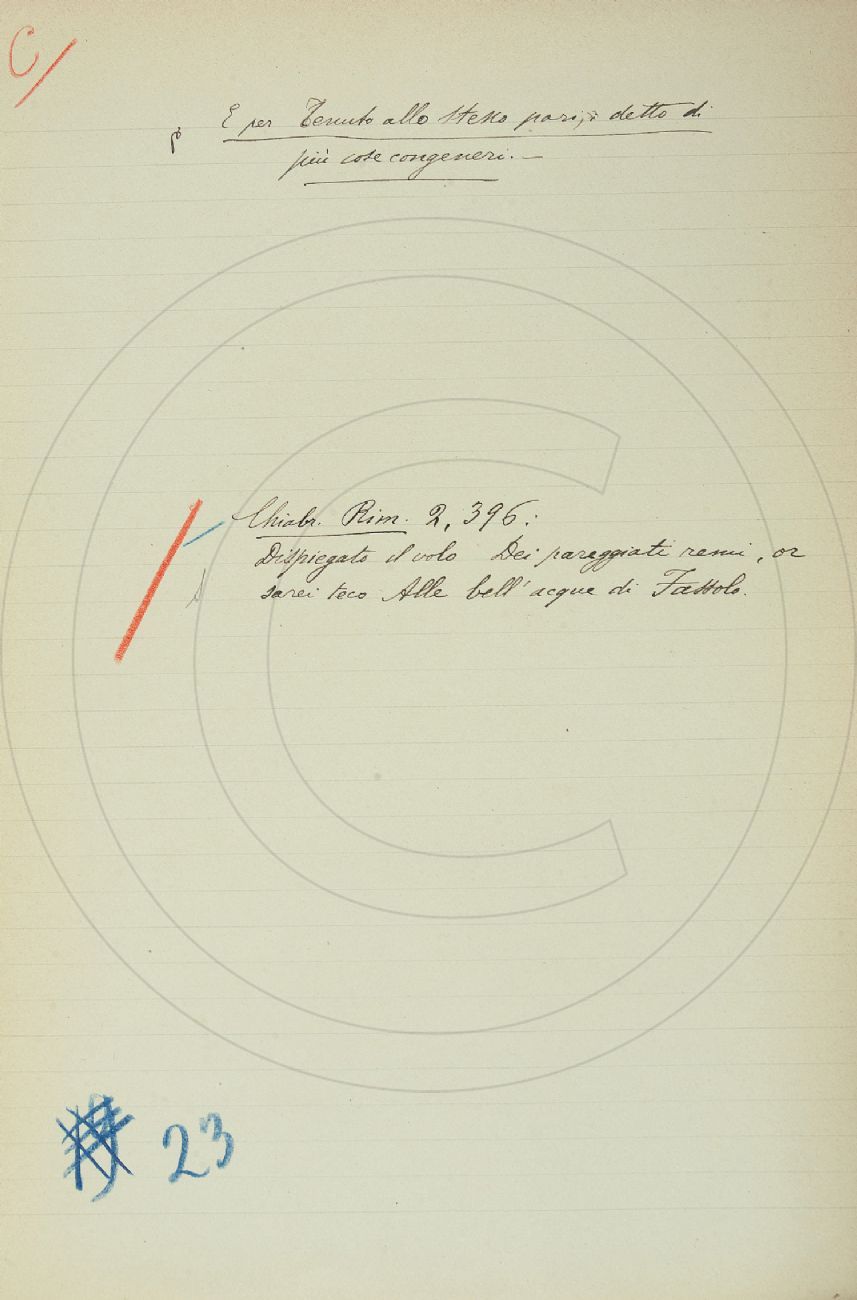 C/
p E per Tenuto allo stesso pari, detto di
più cose congeneri. —
Chiabr. Rim. 2, 396:
Dispiegato il volo Dei pareggiati remi, or
sarei teco Alle bell'acque di Fassolo.
23